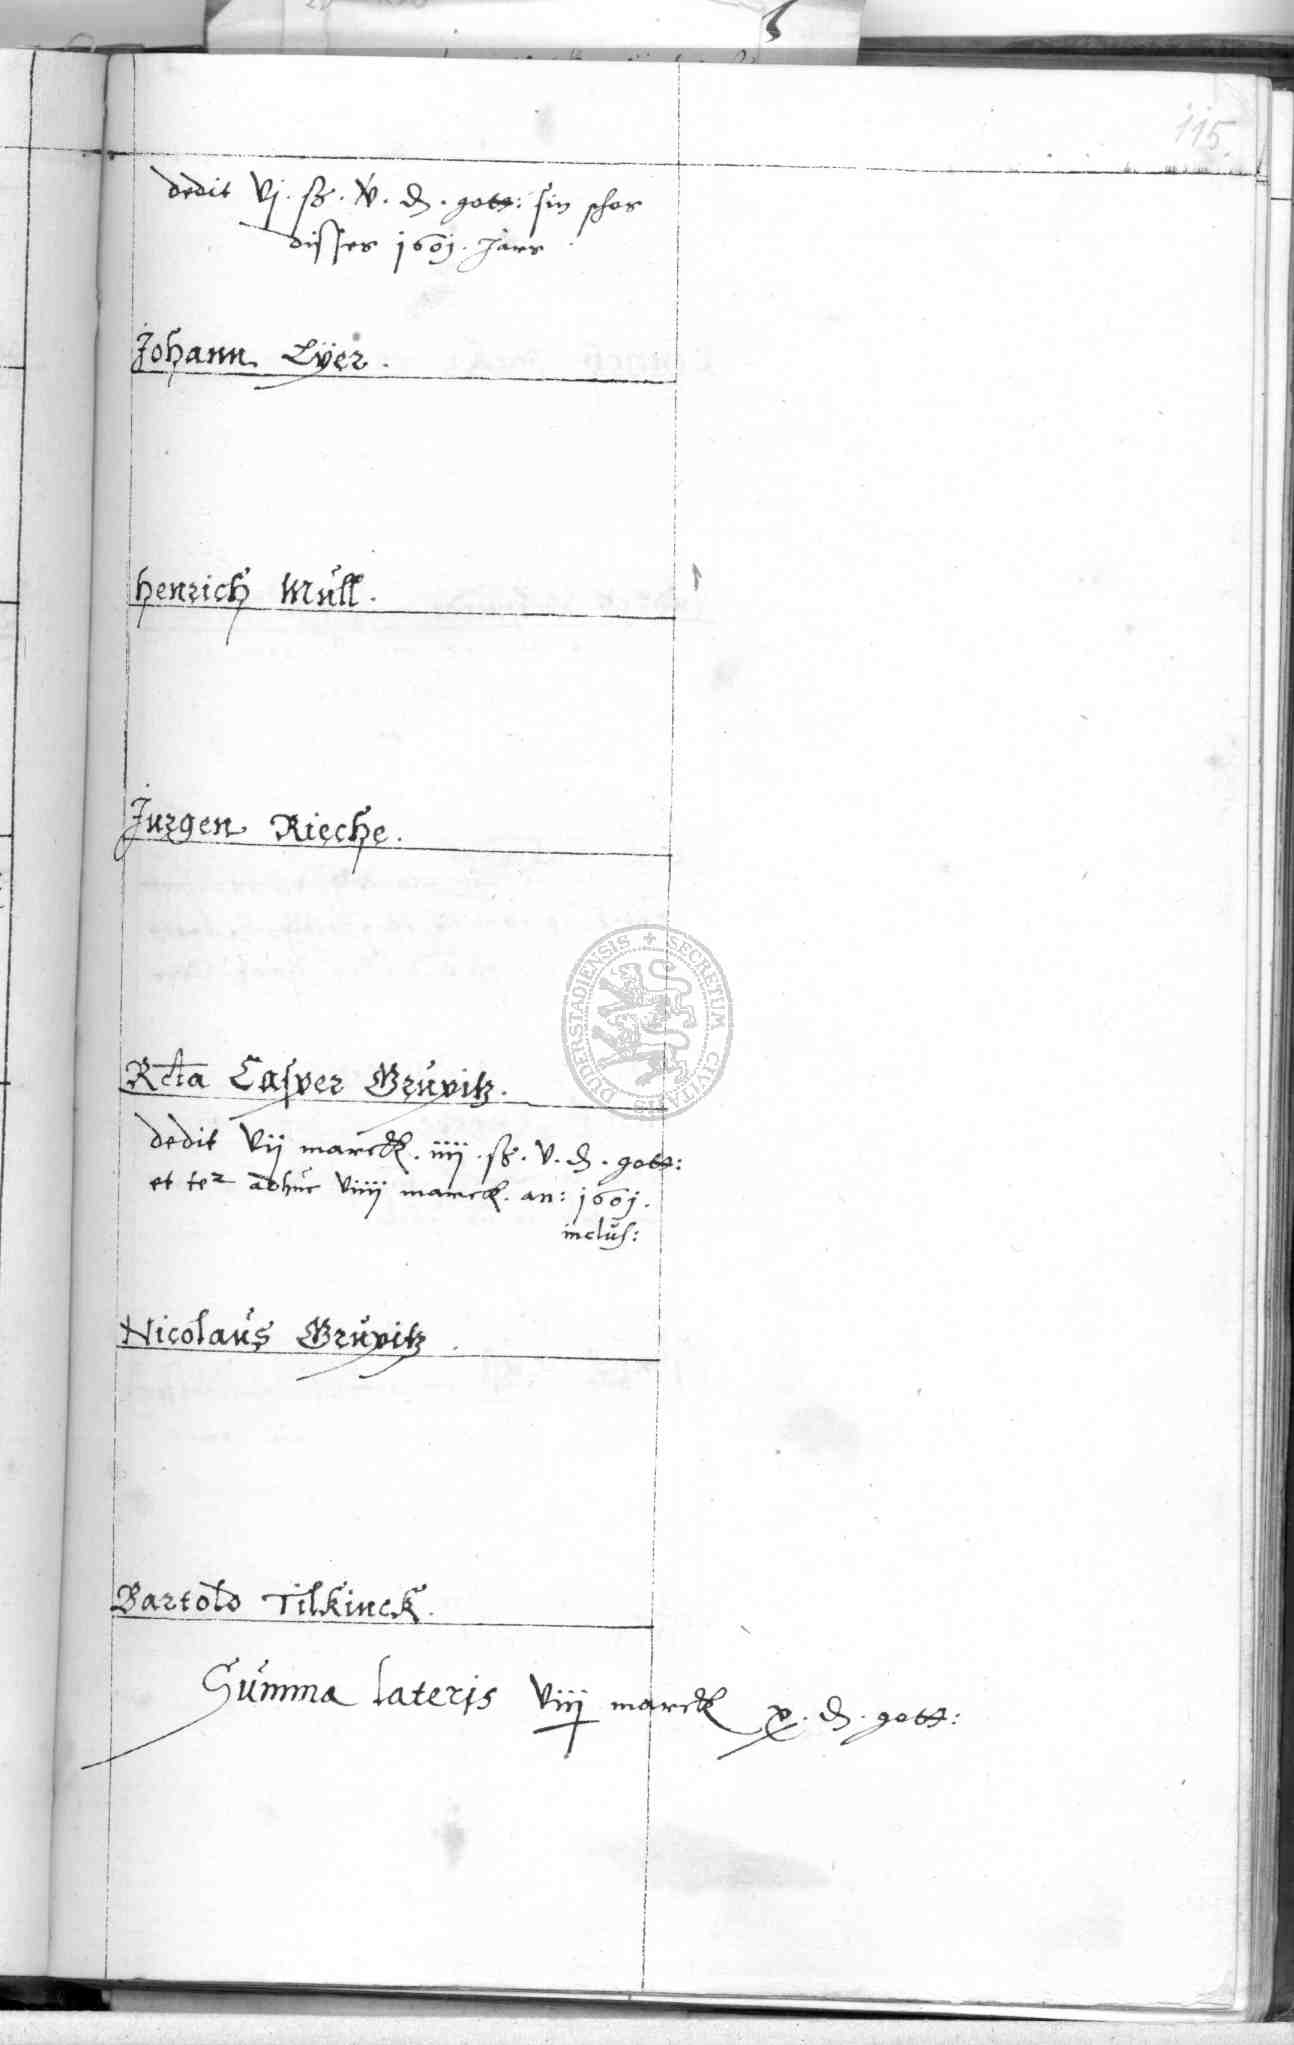 115
dedit vj. ß. v. d. gott: sin schos
disses 1601. Jars
Johann Lÿer.
Henrich Mull.
Jurgen Rieche.
Casper Gruvitz.
dedit vij marck. iiij. ß. v. d. gott:
et adhuc viiij marck. an: 1601.
inclus:
Nicolaus Gruvitz.
Bartold Tilkinck.
Summa lateris viij marck x. d. gott:
SECRETUM CIVITATIS DUDERSTADIENSIS